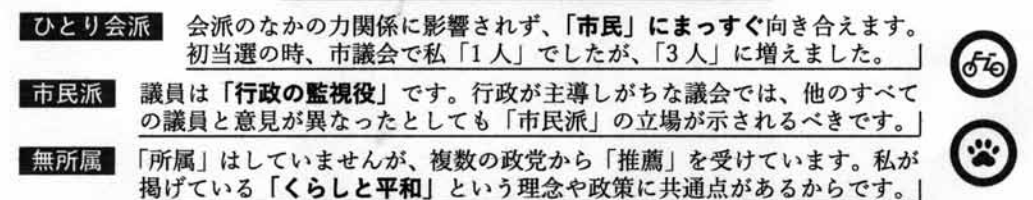 ひとり会派 会派のなかの力関係に影響されず、「市民」にまっすぐ向き合えます。
初当選の時、市議会で私「1人」でしたが、「3人」に増えました。
市民派 議員は「行政の監視役」です。行政が主導しがちな議会では、他のすべて
の議員と意見が異なったとしても「市民派」の立場が示されるべきです。
無所属 「所属」はしていませんが、複数の政党から「推薦」を受けています。私が
掲げている「くらしと平和」という理念や政策に共通点があるからです。